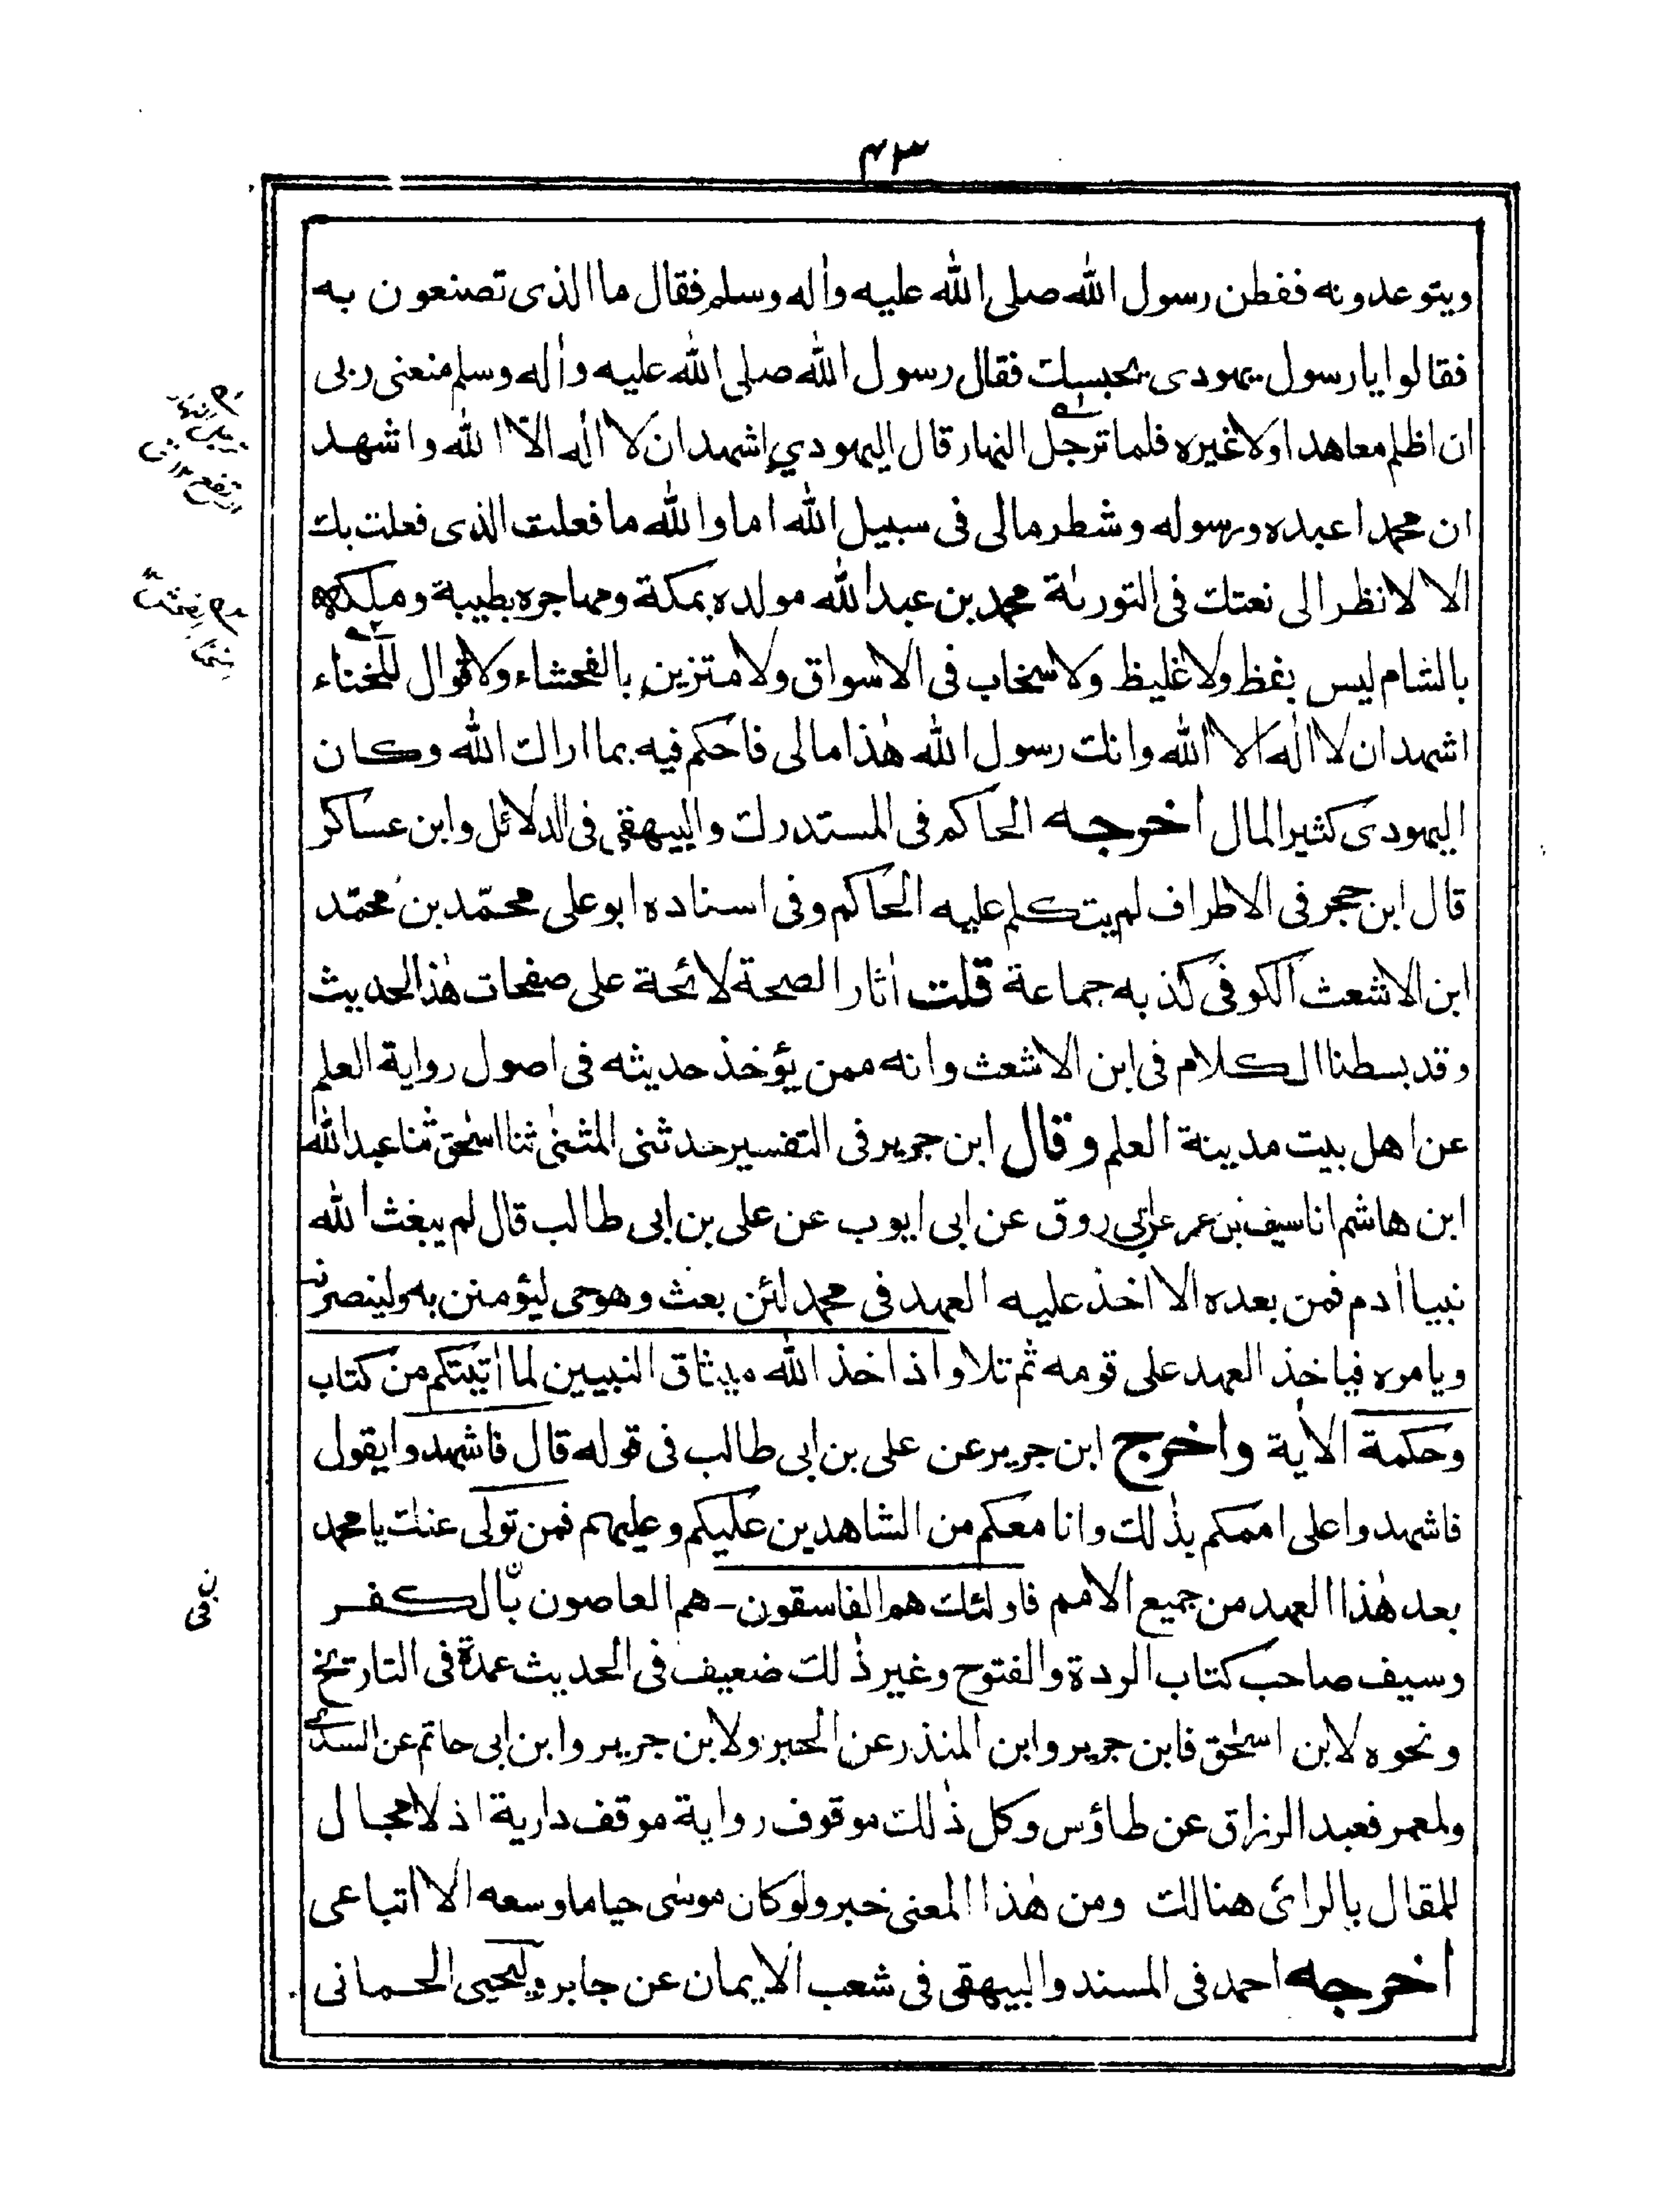 ۴۳
ويتوعدونه ففطن رسول الله صلى الله عليه واٰله وسلم فقال ما الذى تصنعون به
فقالوا يا رسول يهودى يحبسك فقال رسول الله صلى الله عليه واٰله وسلم منعنى ربى
ان اظلم معاهدا ولا غيره فلما ترجل النهار قال اليهودي اشهد ان لا اله الّا الله واشهد
ان محمدا عبده ورسوله وشطر مالى فى سبيل الله اما والله ما فعلت الذى فعلت بك
الا لانظر الى نعتك فى التورىٰة محمد بن عبد الله مولده بمكة ومهاجره بطيبة وملكه
بالشام ليس بفظ ولا غليظ ولا سخاب فى الاسواق ولا متزين بالفحشاء ولا قوال للخناء
اشهد ان لا الٰه الا الله وانك رسول الله هٰذا مالى فاحكم فيه بما اراك الله وكان
اليهودى كثير المال اخرجه الحاكم فى المستدرك والبيهقى فى الدلائل وابن عساكر
قال ابن حجر فى الاطراف لم يتكلم عليه الحاكم وفى اسناده ابو على محمّد بن محمّد
ابن الاشعث الكوفى كذبه جماعة قلت اٰثار الصحة لائحة على صفحات هٰذا الحديث
وقد بسطنا الكلام فى ابن الاشعث وانه ممن يؤخذ حديثه فى اصول رواية العلم
عن اهل بيت مدينة العلم وقال ابن جرير فى التفسير حدثنى المثنىٰ ثنا اسحٰق ثنا عبد الله
ابن هاشم انا سيف بن عمر عن ابى روق عن ابى ايوب عن على بن ابى طالب قال لم يبعث الله
نبيا اٰدم فمن بعده الا اخذ عليه العهد فى محمد لئن بعث وهو حى ليؤمنن به ولينصرنه
ويامره فياخذ العهد على قومه ثم تلا واذ اخذ الله ميثاق النبيين لما اٰتيتكم من كتاب
وحكمة الاٰية واخرج ابن جرير عن على بن ابى طالب فى قوله قال فاشهدوا يقول
فاشهدوا على اممكم بذٰلك وانا معكم من الشاهدين عليكم وعليهم فمن تولى عنك يا محمد
بعد هٰذا العهد من جميع الامم فاولئك هم الفاسقون ـ هم العاصون بالكفر
وسيف صاحب كتاب الردة والفتوح وغير ذٰلك ضعيف فى الحديث عمدة فى التاريخ
ونحوه لابن اسحٰق فابن جرير وابن المنذر عن الحبر ولابن جرير وابن ابى حاتم عن السدى
ولمعمر فعبد الرزاق عن طاؤس وكل ذٰلك موقوف رواية موقف دارية اذ لا مجال
للمقال بالرائ هنالك ومن هٰذا المعنى خبر ولو كان موسٰى حيا ما وسعه الا اتباعى
اخرجه احمد فى المسند والبيهقى فى شعب الايمان عن جابر وليحيى الحمانى